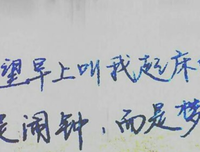 望早上叫我起床
是闹钟，而是梦